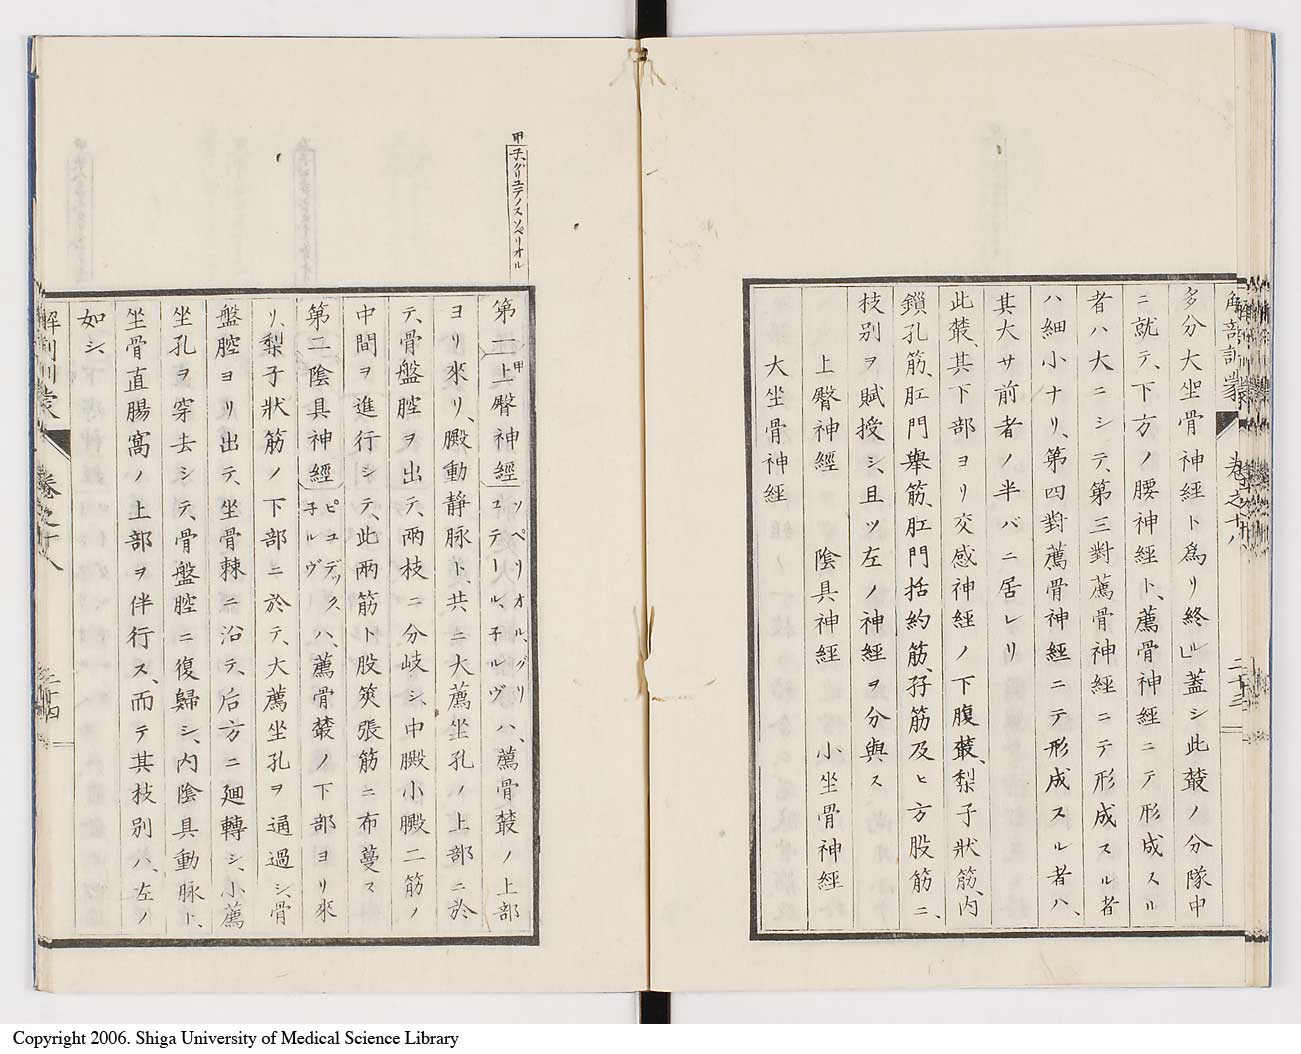 解剖訓蒙 卷之十八 二十三
多分大坐骨神經ト爲リ終ル」蓋シ此叢ノ分隊中
ニ就テ、下方ノ腰神經ト、薦骨神經ニテ形成スル
者ハ大ニシテ、第三對薦骨神經ニテ形成スル者
ハ細小ナリ、第四對薦骨神經ニテ形成スル者ハ、
其大サ前者ノ半バニ居レリ
此叢、其下部ヨリ交感神經ノ下腹叢、梨子狀筋、内
鎖孔筋、肛門擧筋、肛門括約筋、孖筋及ヒ方股筋ニ、
枝別ヲ賦授シ、且ツ左ノ神經ヲ分與ス
上臀神經 陰具神經 小坐骨神經
大坐骨神經
甲 子、グリュテノスソペリオル
第一 甲上臀神經 ソペリオル、グリュテール、子ルヴ ハ、薦骨叢ノ上部
ヨリ來リ、臋動靜脉ト、共ニ大薦坐孔ノ上部ニ於
テ、骨盤腔ヲ出テ、兩枝ニ分岐シ、中臋小臋二筋ノ
中間ヲ進行シテ、此兩筋ト股筴張筋ニ布蔓ス
第二陰具神經 ピユデック、子ルヴ ハ、薦骨叢ノ下部ヨリ來
リ、梨子狀筋ノ下部ニ於テ、大薦坐孔ヲ通過シ、骨
盤腔ヨリ出テ、坐骨棘ニ沿テ、后方ニ廻轉シ、小薦
坐孔ヲ穿去シテ、骨盤腔ニ復歸シ、内陰具動脉ト、
坐骨直腸窩ノ上部ヲ伴行ス、而テ其枝別ハ、左ノ
如シ、
解剖訓蒙 卷之十八 二十四
Copyright 2006. Shiga University of Medical Science Library